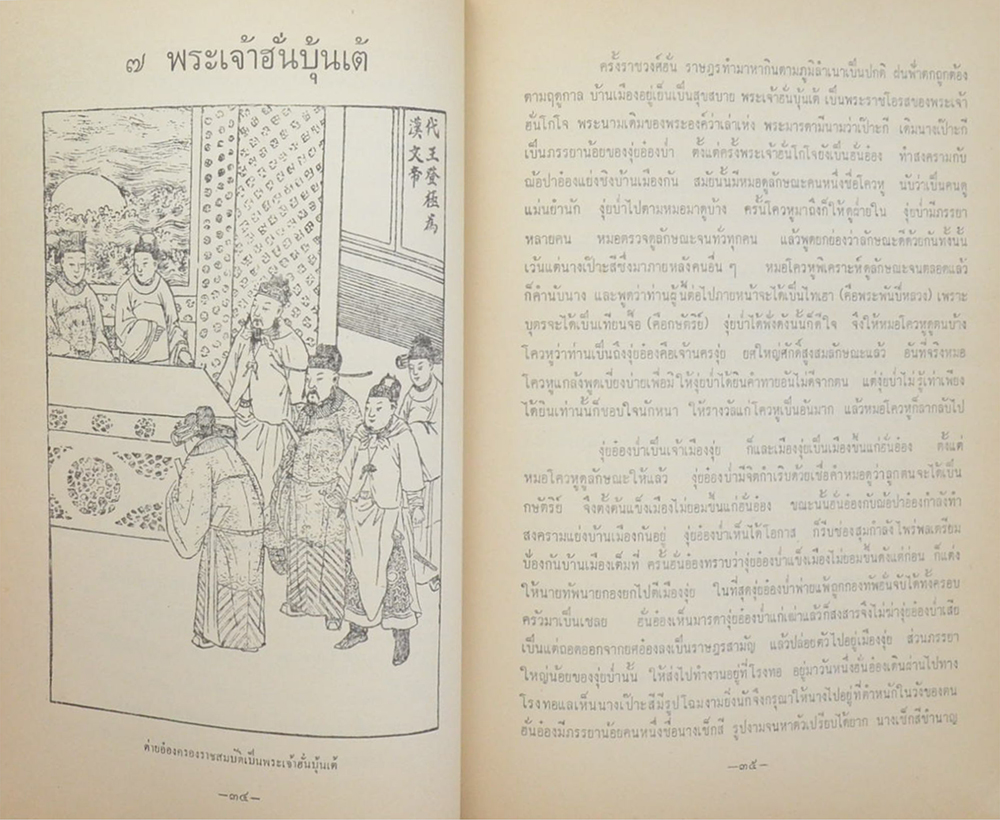 ๗ พระเจ้าฮั่นบุ้นเต้
代王登極為
漢文帝
ต่ายอ๋องครองราชสมบัติเป็นพระเจ้าฮั่นบุ้นเต้
—๓๔—
ครั้งราชวงศ์ฮั่น ราษฎรทำมาหากินตามภูมิลำเนาเป็นปกติ ฝนฟ้าตกถูกต้อง
ตามฤดูกาล บ้านเมืองอยู่เย็นเป็นสุขสบาย พระเจ้าฮั่นบุ้นเต้ เป็นพระราชโอรสของพระเจ้า
ฮั่นโกโจ พระนามเดิมของพระองค์ว่าเล่าเห่ง พระมารดามีนามว่าเป๊าะกี เดิมนางเป๊าะกี
เป็นภรรยาน้อยของงุ่ยอ๋องป่า ตั้งแต่ครั้งพระเจ้าฮั่นโกโจยังเป็นฮั่นอ๋อง ทำสงครามกับ
ฌ้อปาอ๋องแย่งชิงบ้านเมืองกัน สมัยนั้นมีหมอดูลักษณะคนหนึ่งชื่อโควหู นับว่าเป็นคนดู
แม่นยำนัก งุ่ยป่าไปตามหมอมาดูบ้าง ครั้นโควหูมาถึงก็ให้ดูข้างใน งุ่ยป่ามีภรรยา
หลายคน หมอตรวจดูลักษณะจนทั่วทุกคน แล้วพูดยกย่องว่าลักษณะดีด้วยกันทั้งนั้น
เว้นแต่นางเป๊าะสีซึ่งมาภายหลังคนอื่น ๆ หมอโควหูพิเคราะห์ดูลักษณะจนตลอดแล้ว
ก็คำนับนาง และพูดว่าท่านผู้นี้ต่อไปภายหน้าจะได้เป็นไทเฮา (คือพระพันปีหลวง) เพราะ
บุตรจะได้เป็นเทียนจื๊อ (คือกษัตริย์) งุ่ยป่าได้ฟังดังนั้นก็ดีใจ จึงให้หมอโควหูดูตนบ้าง
โควหูว่าท่านเป็นถึงงุ่ยอ๋องคือเจ้านครงุ่ย ยศใหญ่ศักดิ์สูงสมลักษณะแล้ว อันที่จริงหมอ
โควหูแกล้งพูดเบี่ยงบ่ายเพื่อมิให้งุ่ยป่าได้ยินคำทายอันไม่ดีจากตน แต่งุ่ยป่าไม่รู้เท่าเพียง
ได้ยินเท่านั้นก็ชอบใจนักหนา ให้รางวัลแก่โควหูเป็นอันมาก แล้วหมอโควหูก็ลากลับไป
งุ่ยอ๋องป่าเป็นเจ้าเมืองงุ่ย ก็และเมืองงุ่ยเป็นเมืองขึ้นแก่ฮั่นอ๋อง ตั้งแต่
หมอโควหูดูลักษณะให้แล้ว งุ่ยอ๋องป่ามีจิตกำเริบด้วยเชื่อคำหมอดูว่าลูกตนจะได้เป็น
กษัตริย์ จึงตั้งตนแข็งเมืองไม่ยอมขึ้นแก่ฮั่นอ๋อง ขณะนั้นฮั่นอ๋องกับฌ้อปาอ๋องกำลังทำ
สงครามแย่งบ้านเมืองกันอยู่ งุ่ยอ๋องป่าเห็นได้โอกาส ก็รีบซ่องสุมกำลังไพร่พลเตรียม
ป้องกันบ้านเมืองเต็มที่ ครั้นฮั่นอ๋องทราบว่างุ่ยอ๋องป่าแข็งเมืองไม่ยอมขึ้นดังแต่ก่อน ก็แต่ง
ให้นายทัพนายกองยกไปตีเมืองงุ่ย ในที่สุดงุ่ยอ๋องป่าพ่ายแพ้ถูกกองทัพฮั่นจับได้ทั้งครอบ
ครัวมาเป็นเชลย ฮั่นอ๋องเห็นมารดางุ่ยอ๋องป่าแก่เฒ่าแล้วก็สงสารจึงไม่ฆ่างุ่ยอ๋องป่าเสีย
เป็นแต่ถอดออกจากยศอ๋องลงเป็นราษฎรสามัญ แล้วปล่อยตัวไปอยู่เมืองงุ่ย ส่วนภรรยา
ใหญ่น้อยของงุ่ยป่านั้น ให้ส่งไปทำงานอยู่ที่โรงทอ อยู่มาวันหนึ่งฮั่นอ๋องเดินผ่านไปทาง
โรงทอแลเห็นนางเป๊าะสีมีรูปโฉมงามยิ่งนักจึงกรุณาให้นางไปอยู่ที่ตำหนักในวังของตน
ฮั่นอ๋องมีภรรยาน้อยคนหนึ่งชื่อนางเช็กสี รูปงามจนหาตัวเปรียบได้ยาก นางเช็กสีชำนาญ
—๓๕—